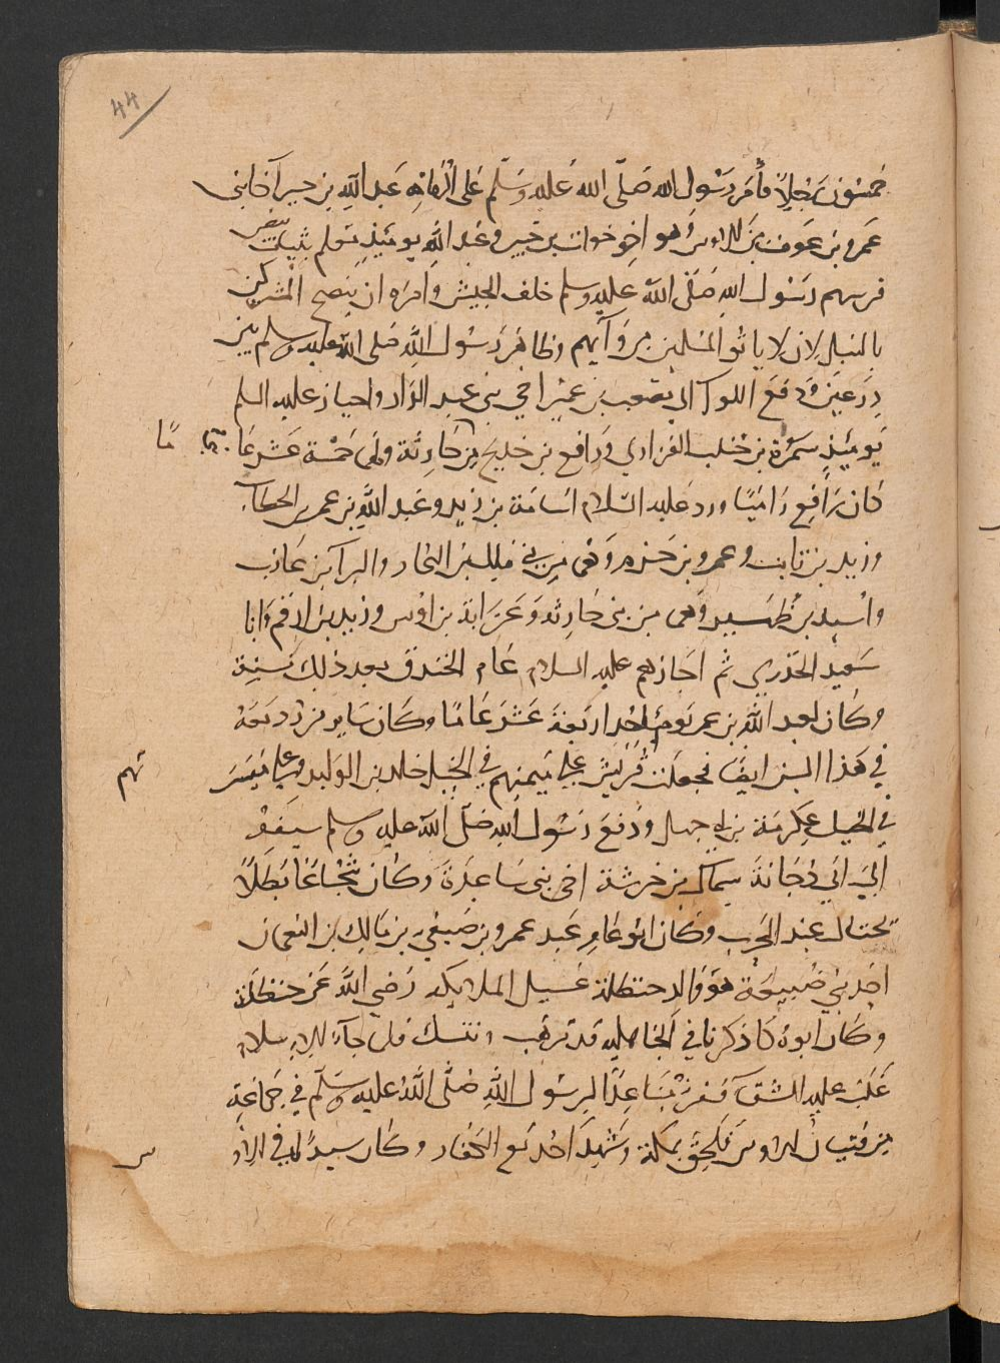 ٤٤
خمسون رجلا فأمر رسول الله صلى الله عليه وسلم على الرماة عبد الله بن جبير اخا بني
عمرو بن عوف من الاوس وهو اخو خوات بن جبير وعبد الله يومئذ معلم بثياب بيض
فرتبهم رسول الله صلى الله عليه وسلم خلف الجيش وامره ان ينضح المشركين
بالنبل لان لا ياتوا المسلمين من ورآيهم وظاهر رسول الله صلى الله عليه وسلم بين
درعين ودفع اللوآ الى مصعب بن عمير اخي بني عبد الدار واجاز عليه السلم
يومئذ سمرة بن جندب الفزاري ورافع بن خديج من حارثة ولهما خمسة عشر عاما
كان رافع راميا ورد عليه السلام اسامة بن زيد وعبد الله بن عمر بن الخطاب
وزيد بن ثابت وعمرو بن حزم وهما من بني مالك بن النجار والبرآ بن عازب
واسيد بن ظهير وهما من بني حارثة وعرابة بن اوس وزيد بن ارقم وابا
سعيد الخدري ثم اجازهم عليه السلام عام الخندق بعد ذلك بسنة
وكان لعبد الله بن عمر يوم احد اربعة عشر عاما وكان ساير من رد معه
في هذا السن ايضا فجعلت قريش على ميمنتهم في الخيل خالد بن الوليد وعلى ميسرتهم
في الخيل عكرمة بن ابي جهل ودفع رسول الله صلى الله عليه وسلم سيفه
الى ابي دجانة سماك بن خرشة اخي بني ساعدة وكان شجاعا بطلا
يختال عند الحرب وكان ابو عامر عبد عمرو بن صيفي بن مالك بن النعمان
احد بني ضبيعة هو والد حنظلة غسيل الملايكه رضي الله عن حنظلة
وكان ابوه كما ذكرنا في الجاهليه قد ترهب وتنسك فلما جآء الاسلام
غلب عليه الشقآ ففر مباعدا لرسول الله صلى الله عليه وسلم في جماعة
من فتيان الاوس فلحق بمكة وشهد احد مع الكفار وكان سيدا في الاوس